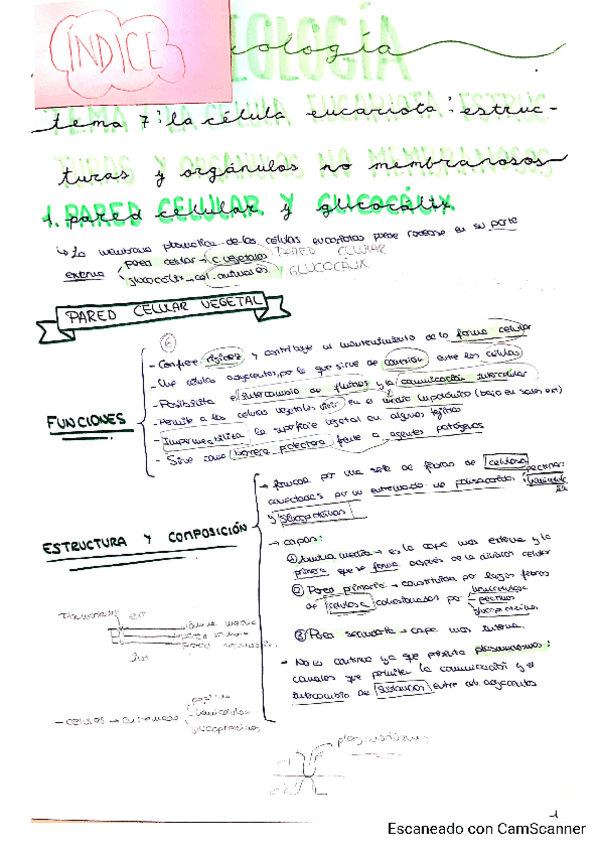 ÍNDICE
BIOLOGÍA
tema 7: la célula eucariota: estruc-
turas y orgánulos no membranosos
1. pared celular y glucocálix.
↳ La membrana plasmática de las células eucariotas puede rodearse en su parte
externa pared celular → c. vegetales PARED CELULAR
glucocálix → cél. animales Y GLUCOCÁLIX
PARED CELULAR VEGETAL
⑥
FUNCIONES
- Confiere rigidez y contribuye al mantenimiento de la forma celular
- Une células adyacentes, por lo que sirve de conexión entre las células
- Posibilita el intercambio de fluidos y la comunicación intercelular
- Permite a las células vegetales vivir en el medio hipotónico (bajo en sales ext)
- Impermeabiliza la superficie vegetal en algunos tejidos
- Sirve como barrera protectora frente a agentes patógenos
ESTRUCTURA Y COMPOSICIÓN
→ formada por una serie de fibras de celulosa
conectadas por un entramado de polisacáridos pectinas hemicelulosa
y glucoproteínas
→ capas:
① Lámina media → es la capa más externa y la
primera que se forma después de la división celular
② Pared primaria → constituida por largas fibras
de celulosa conectadas por hemicelulosa
pectinas
glucoproteínas
③ Pared secundaria → capa más interna.
- No es continua ya que presenta plasmodesmos:
canales que permiten la comunicación y el
intercambio de sustancias entre cél. adyacentes
ext
lámina media
pared primaria
pared secundaria
int
- CELULOSA → entramado
pectinas
hemicelulosa
glucoproteínas
plasmodesmos
1
Escaneado con CamScanner